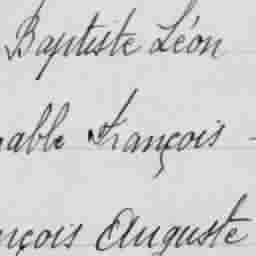 Baptiste Léon
able François -
nçois Auguste